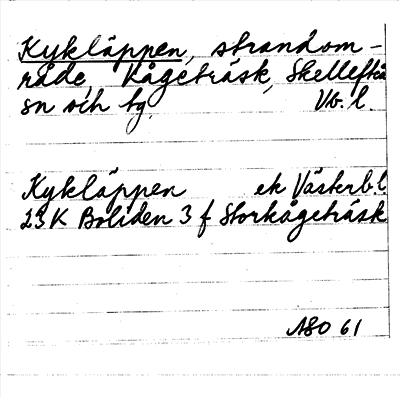 Kykläppen, strandom-
råde, Kågeträsk, Skellefteå
sn och tg. Vb. l.
Kykläppen ek Västerb. l.
23 K Boliden 3 f Storkågeträsk
ASO 61